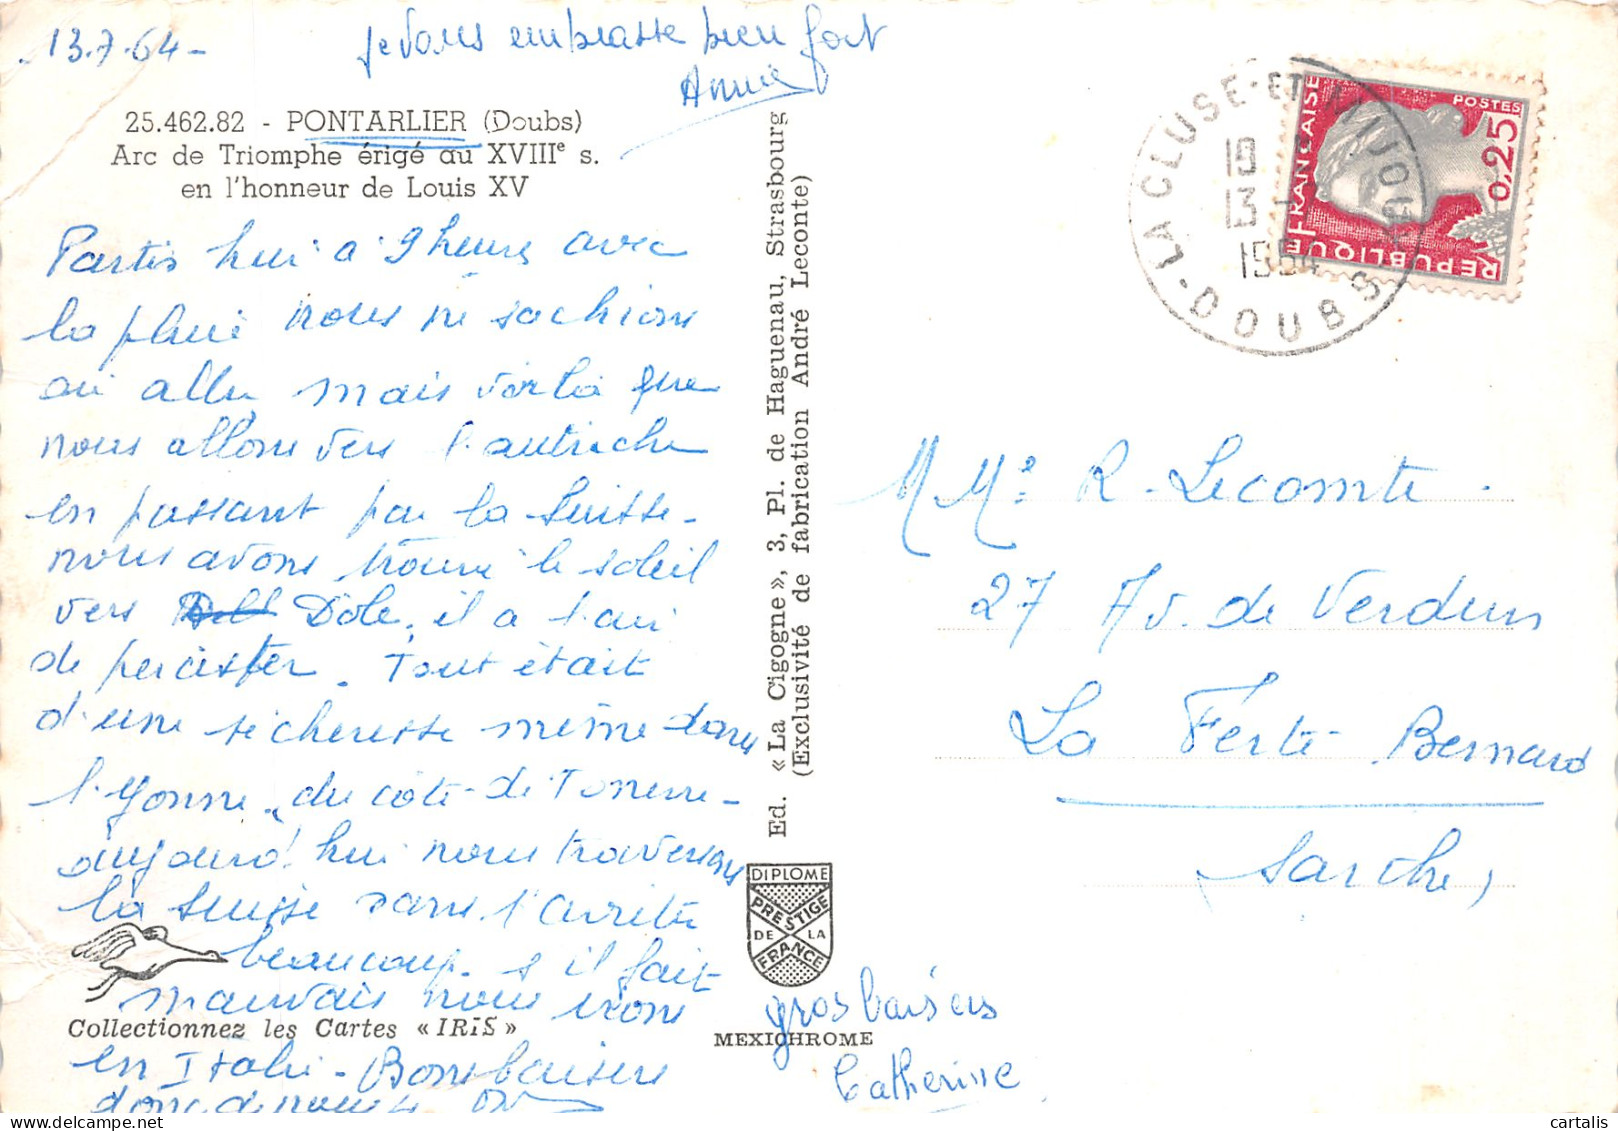 13.7.64 -
je vous embrasse bien fort
Annie
25.462.82 - PONTARLIER (Doubs)
Arc de Triomphe érigé au XVIIIe s.
en l'honneur de Louis XV
Partis hier à 9 heures avec
la pluie nous ne sachions
où aller mais voilà que
nous allons vers l'autriche
en passant par la Suisse -
nous avons trouvé le soleil
vers Dole, il a l'air
de percister. Tout était
d'une sécheresse même dans
l'Yonne, du côté de Tonnerre -
aujourd'hui nous traversons
la Suisse sans s'arrêter
beaucoup. s'il fait
mauvais nous irons
Collectionnez les Cartes «IRIS»
en Italie - Bons baisers
donc de nous 4
Ed. «La Cigogne», 3, Pl. de Haguenau, Strasbourg
(Exclusivité de fabrication André Leconte)
DIPLOME
PRESTIGE
DE LA
FRANCE
MEXICHROME
gros baisers
Catherine
LA CLUSE-ET-MIJOUX
19
13 -
1964
- DOUBS
REPUBLIQUE FRANÇAISE
POSTES
0,25
M Me R. Lecomte.
27 Av. de Verdun
La Ferté-Bernard
Sarthe,